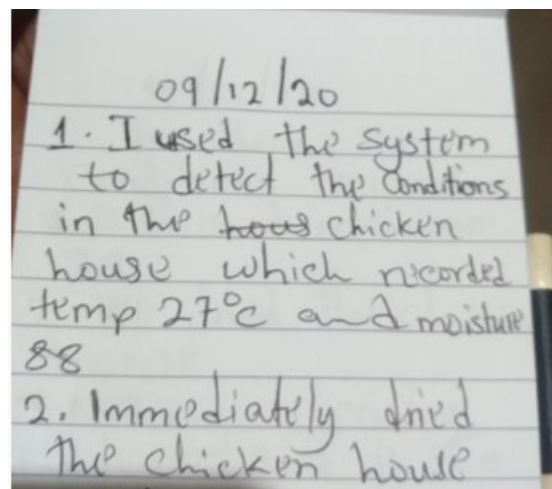 09/12/20
1. I used the system
to detect the Conditions
in the hous chicken
house which recorded
temp 27°c and moisture
88
2. Immediately dried
the chicken house